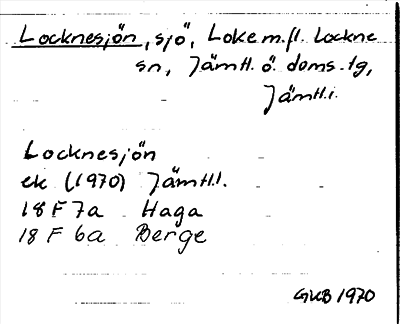 Locknesjön, sjö, Loke m.fl. Lockne
sn, Jämtl. ö. doms.tg,
Jämtl.
Locknesjön
ek (1970) Jämtl.l.
18 F 7a Haga
18 F 6a Berge
GKB 1970